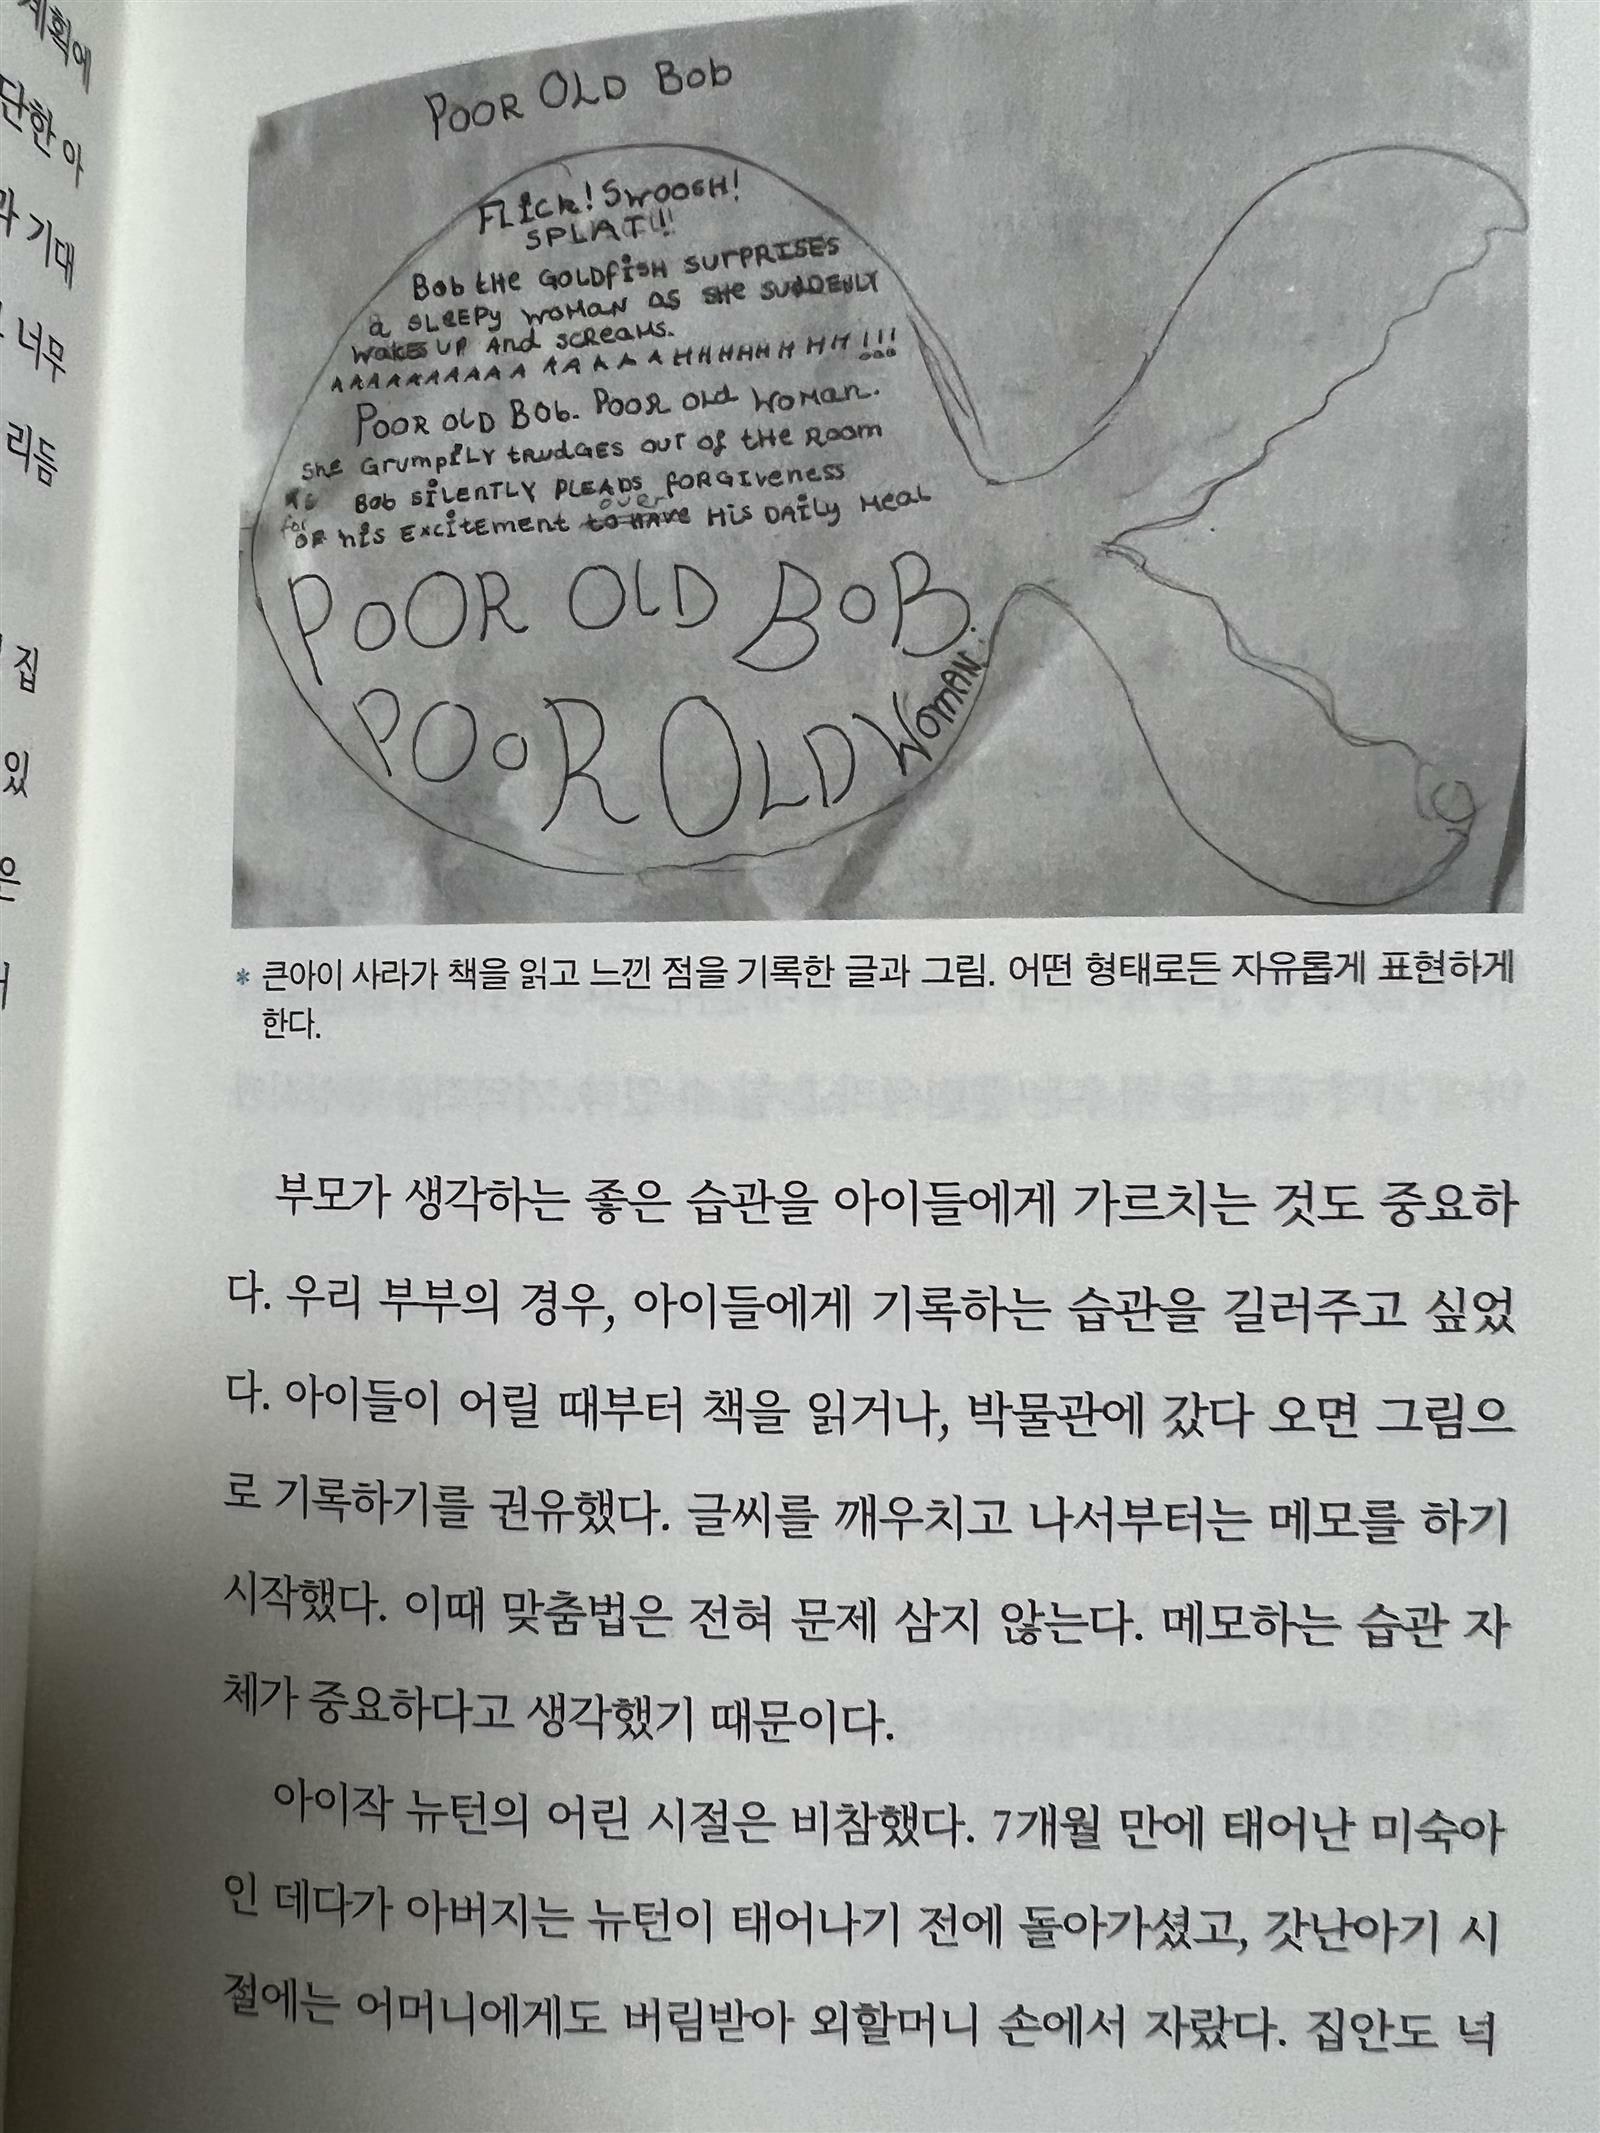 계획에
단한 아
과 기대
너무
리듬
집
있
은
POOR OLD Bob
FLicK! SWOOSH!
SPLAT!!!
Bob tHe GOLDfiSH SurPRISES
a SLEEPy WOMAN as SHe SUDDENLY
WakES UP And SCReaMS.
AAAAAAAAAA AAAAAHHHHHHHH!!!
POOR OLD BOb. POOR OLd WOMAN.
SHe GrumPiLY tRudGES OuT of tHe ROOM
as Bob SiLENTLY PLEADS fORGIveness
over
for
OF hiS ExCitEment to HAVe HiS DAiLy MeaL
POOR OLD BOB.
POOR OLD WOMAN.
* 큰아이 사라가 책을 읽고 느낀 점을 기록한 글과 그림. 어떤 형태로든 자유롭게 표현하게
한다.
부모가 생각하는 좋은 습관을 아이들에게 가르치는 것도 중요하
다. 우리 부부의 경우, 아이들에게 기록하는 습관을 길러주고 싶었
다. 아이들이 어릴 때부터 책을 읽거나, 박물관에 갔다 오면 그림으
로 기록하기를 권유했다. 글씨를 깨우치고 나서부터는 메모를 하기
시작했다. 이때 맞춤법은 전혀 문제 삼지 않는다. 메모하는 습관 자
체가 중요하다고 생각했기 때문이다.
아이작 뉴턴의 어린 시절은 비참했다. 7개월 만에 태어난 미숙아
인 데다가 아버지는 뉴턴이 태어나기 전에 돌아가셨고, 갓난아기 시
절에는 어머니에게도 버림받아 외할머니 손에서 자랐다. 집안도 넉